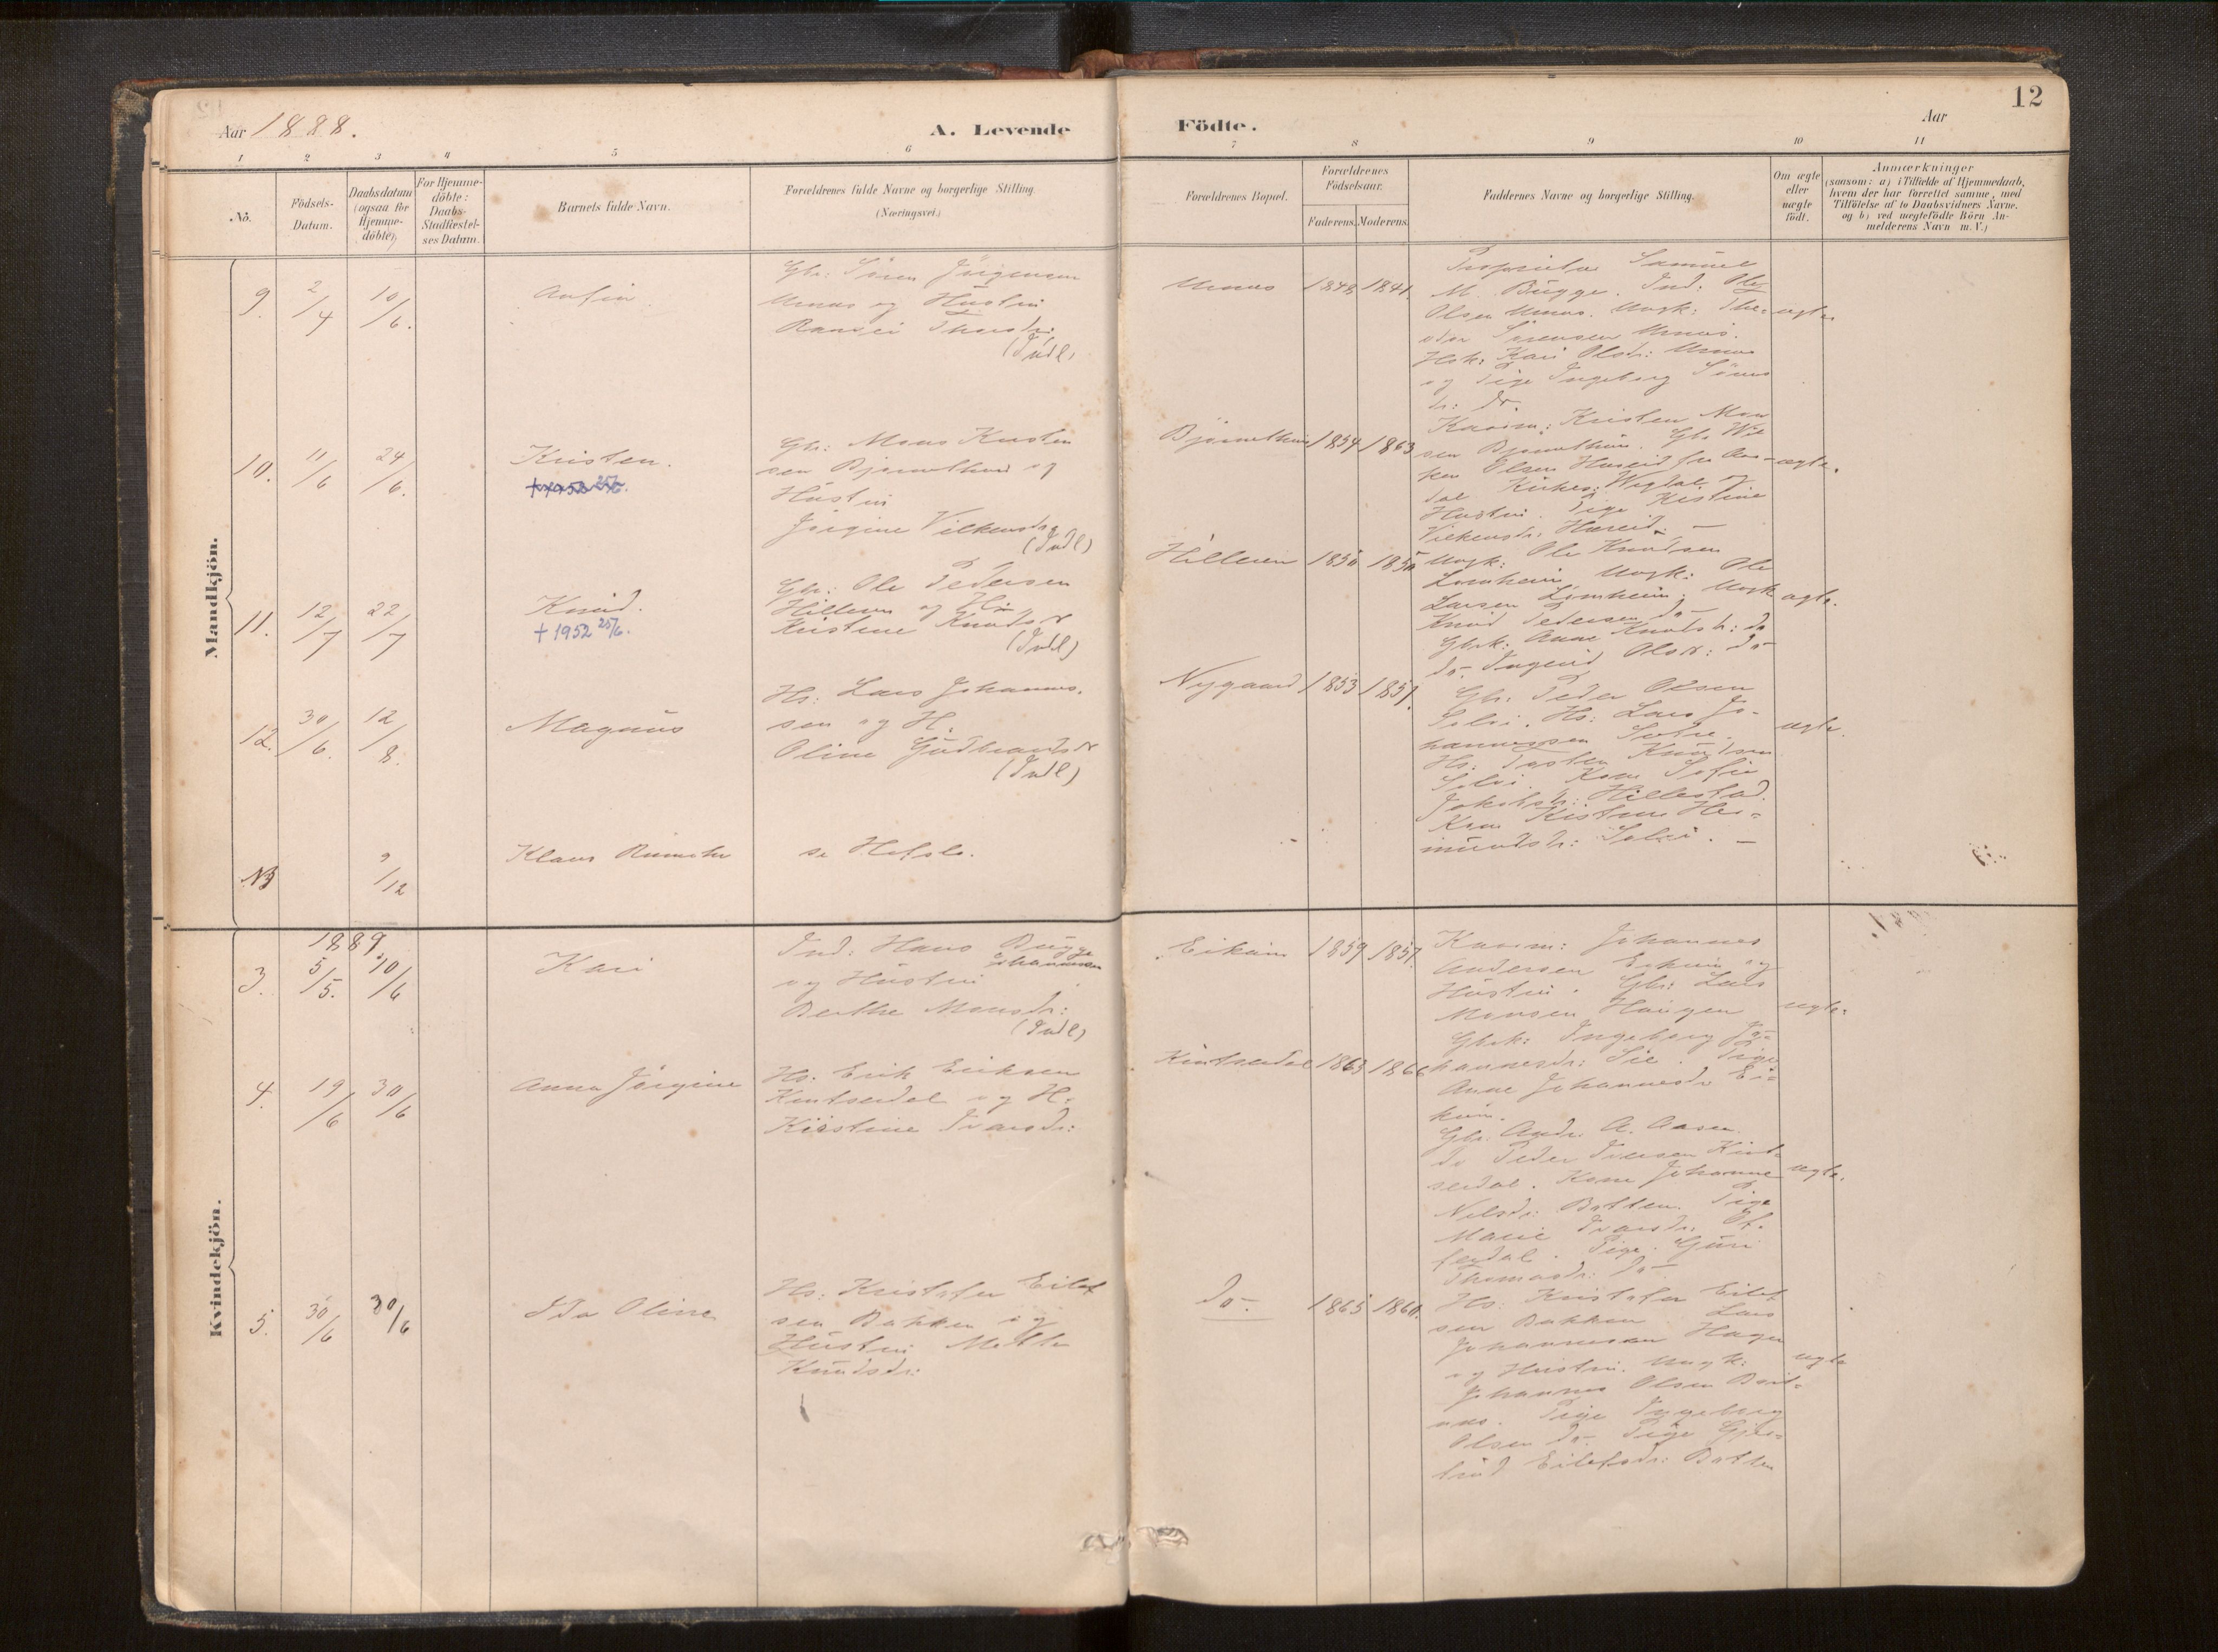 12
Aar 1888.
A. Levende Födte.
Aar
1 2 3 4 5 6 7 8 9 10 11
Nö.
Födsels-
Datum.
Daabsdatum
(ogsaa for
Hjemme-
döbte)
For Hjemme-
döbte:
Daabs-
Stadfæstel-
ses Datum.
Barnets fulde Navn.
Forældrenes fulde Navne og borgerlige Stilling.
(Næringsvei.)
Forældrenes Bopæl.
Forældrenes
Födselsaar.
Faderens. Moderens.
Faddernes Navne og borgerlige Stilling.
Om ægte
eller
uægte
födt.
Anmærkninger
(saasom: a) i Tilfælde af Hjemmedaab,
hvem der har forrettet samme, med
Tilföielse af to Daabsvidners Navne.
og b) ved uægtefödte Börn An-
melderens Navn m.V.)
Mandkjön.
9. 2/4 10/6.
Gbr: Sören Jörgensen
Urnes og Hustru
(Indl)
Urnes 1848 1841.
Proprietær Samuel
M. Bugge. Ind: Ole
Olsen Urnes. Ungk: The-
odor Sörensen Urnes.
Hsk: Kari Olsdr: Urnes
og Pige Ingeborg Sörens
dr: do.
ægte.
10. 11/6 24/6.
Kristen.
Gbr: Mons Kristen
sen Bjørnethun og
Hustru
Jörgine Vilkensdr
(Indl)
Bjørnethun 1854 1863
Kaarm: Kristen Mon
sen Bjørnethun. Gbr Wil
ken Olsen Hareid fra Aar-
dal
Hustru. Pige Kistine
Vilkensdr: Hareid. –
ægte.
11. 12/7 22/7
Knud.
+ 1952 25/6.
Gbr: Ole Pedersen
Hilleren og H.
Kristine Knudsdr
(Indl)
Hilleren 1850 1850
Ungk: Ole Knudsen
Lomheim Ungk: Ole
Larsen Lomheim. Ungk
Knud Pedersen do
Gbrk: Anne Knudsdr: do
do Ingerid Olsdr: do
ægte.
12. 30/6. 12/8.
Magnus
Hs: Lars Johannes-
sen og H.
Oline Gudbrandsdr
(Indl)
Nygaard 1853 1851.
Gbr: Peder Olsen
Solvi. Hs: Lars Jo-
hannessen
Hs: Knudsen
Solvi. Kone Sofie
Jakobsdr: Hillestad.
Kone Kistine Hei-
mundsdr: Solvi. –
ægte.
NB 9/12
Klaus
se Hafslo.
Kvindekjön.
1889.
3. 5/5. 10/6
Kari
Ind: Hans Bugge
Johannesen
og Hustru
Berthe Monsdr:
(Indl)
Eikum 1859 1857.
Kaarm: Johannes
Andersen Eikum og
Hustru. Gbr: Lars
Monsen Haugen
Gbrk: Ingeborg Jo-
hannesdr: Sie. Pige
Anne Johannesdr Ei-
kum.
ægte.
4. 19/6 30/6
Anna Jörgine
Hs: Erik Eriksen
Kintseidal og H.
Kirstine Ivarsdr:
Kintseidal 1863 1866
Gbr. Andr. A. Aasen
do Peder Iversen Kint-
seidal. Kone Johanne
Nilsdr: Botten. Pige
Marie Ivarsdr: Ot-
terdal. Pige Guri
Thomasdr: do
ægte.
5. 30/6 30/6
Ida Oline
Hs: Kristofer Eilef
sen Bakken og
Hustru Mette
Knudsdr:
do. 1865 1860.
Hs: Kristofer Eilef
sen Bakken Lars
Johannesen Hagen
og Hustru. Ungk:
Johannes Olsen
Pige Ingeborg
Olsen do. Pige
Eilefsdr: Botten
ægte